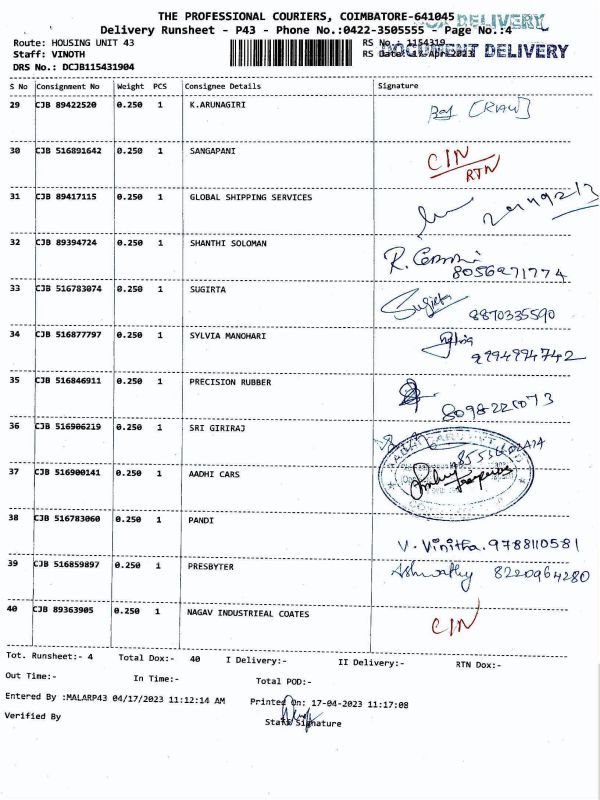 THE PROFESSIONAL COURIERS, COIMBATORE-641045
Delivery Runsheet - P43 - Phone No.:0422-3505555 - Page No.:4
DELIVERY
DOCUMENT DELIVERY
Route: HOUSING UNIT 43 RS No.: 1154319
Staff: VINOTH RS Date: 17-Apr-2023
DRS No.: DCJB115431904
S No Consignment No Weight PCS Consignee Details Signature
29 CJB 89422520 0.250 1 K.ARUNAGIRI
30 CJB 516891642 0.250 1 SANGAPANI CIN RTN
31 CJB 89417115 0.250 1 GLOBAL SHIPPING SERVICES
32 CJB 89394724 0.250 1 SHANTHI SOLOMAN R. 8056271774
33 CJB 516783074 0.250 1 SUGIRTA Sugirta 8870335590
34 CJB 516877797 0.250 1 SYLVIA MANOHARI 9994994742
35 CJB 516846911 0.250 1 PRECISION RUBBER
36 CJB 516906219 0.250 1 SRI GIRIRAJ
37 CJB 516900141 0.250 1 AADHI CARS
38 CJB 516783060 0.250 1 PANDI V. Vinitha. 9788110581
39 CJB 516859897 0.250 1 PRESBYTER Ashwathy 8220964280
40 CJB 89363905 0.250 1 NAGAV INDUSTRIEAL COATES CIN
Tot. Runsheet:- 4 Total Dox:- 40 I Delivery:- II Delivery:- RTN Dox:-
Out Time:- In Time:- Total POD:-
Entered By :MALARP43 04/17/2023 11:12:14 AM Printed On: 17-04-2023 11:17:08
Verified By Staff Signature